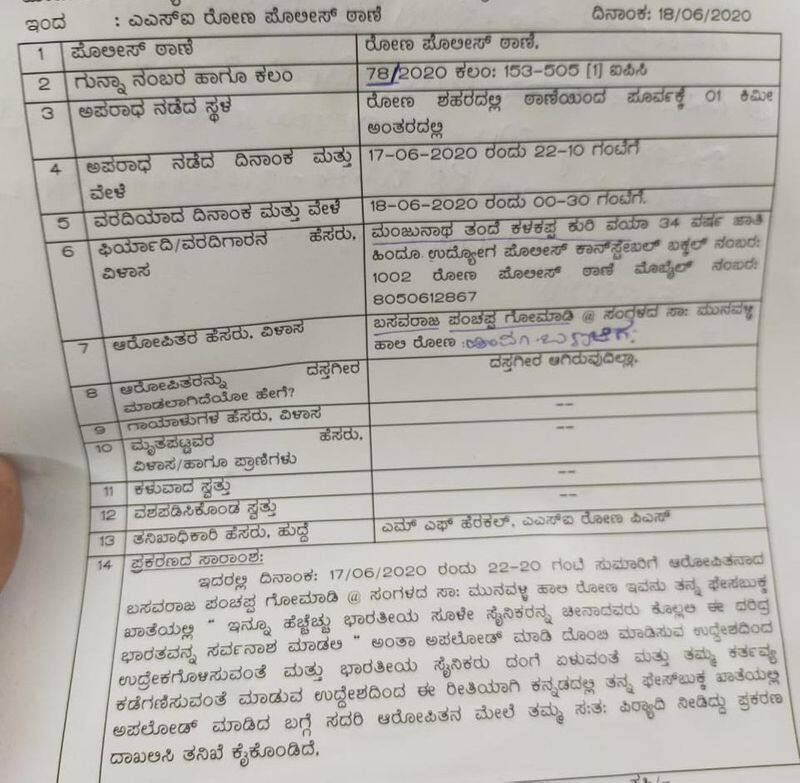 ಇಂದ : ಎಎಸ್ಐ ರೋಣ ಪೊಲೀಸ್ ಠಾಣೆ ದಿನಾಂಕ: 18/06/2020
1 ಪೊಲೀಸ್ ಠಾಣೆ ರೋಣ ಪೊಲೀಸ್ ಠಾಣೆ,
2 ಗುನ್ನಾ ನಂಬರ ಹಾಗೂ ಕಲಂ 78/2020 ಕಲಂ: 153-505 [1] ಐಪಿಸಿ
3 ಅಪರಾಧ ನಡೆದ ಸ್ಥಳ ರೋಣ ಶಹರದಲ್ಲಿ ಠಾಣೆಯಿಂದ ಪೂರ್ವಕ್ಕೆ 01 ಕಿಮೀ
ಅಂತರದಲ್ಲಿ
4 ಅಪರಾಧ ನಡೆದ ದಿನಾಂಕ ಮತ್ತು 17-06-2020 ರಂದು 22-10 ಗಂಟೆಗೆ
ವೇಳೆ
5 ವರದಿಯಾದ ದಿನಾಂಕ ಮತ್ತು ವೇಳೆ 18-06-2020 ರಂದು 00-30 ಗಂಟೆಗೆ.
6 ಫಿರ್ಯಾದಿ/ವರದಿಗಾರನ ಹೆಸರು, ಮಂಜುನಾಥ ತಂದೆ ಕಳಕಪ್ಪ ಕುರಿ ವಯಾ 34 ವರ್ಷ ಜಾತಿ
ವಿಳಾಸ ಹಿಂದೂ ಉದ್ಯೋಗ ಪೊಲೀಸ್ ಕಾನ್ಸ್ಟೇಬಲ್ ಬಕ್ಕಲ್ ನಂಬರ:
1002 ರೋಣ ಪೊಲೀಸ್ ಠಾಣೆ ಮೊಬೈಲ್ ನಂಬರ:
8050612867
7 ಆರೋಪಿತರ ಹೆಸರು, ವಿಳಾಸ ಬಸವರಾಜ ಪಂಚಪ್ಪ ಗೋಮಾಡಿ @ ಸಂಗಳದ ಸಾ: ಮುನವಳ್ಳಿ
ಹಾಲಿ ರೋಣ :
8 ಆರೋಪಿತರನ್ನು ದಸ್ತಗೀರ ದಸ್ತಗೀರ ಆಗಿರುವುದಿಲ್ಲಾ,
ಮಾಡಲಾಗಿದೆಯೋ ಹೇಗೆ?
9 ಗಾಯಾಳುಗಳ ಹೆಸರು, ವಿಳಾಸ --
10 ಮೃತಪಟ್ಟವರ ಹೆಸರು, --
ವಿಳಾಸ/ಹಾಗೂ ಪ್ರಾಣಿಗಳು
11 ಕಳುವಾದ ಸ್ವತ್ತು --
12 ವಶಪಡಿಸಿಕೊಂಡ ಸ್ವತ್ತು --
13 ತನಿಖಾಧಿಕಾರಿ ಹೆಸರು, ಹುದ್ದೆ ಎಮ್ ಎಫ್ ಹೆರಕಲ್, ಎಎಸ್ಐ ರೋಣ ಪಿಎಸ್
14 ಪ್ರಕರಣದ ಸಾರಾಂಶ:
ಇದರಲ್ಲಿ ದಿನಾಂಕ: 17/06/2020 ರಂದು 22-20 ಗಂಟೆ ಸುಮಾರಿಗೆ ಆರೋಪಿತನಾದ
ಬಸವರಾಜ ಪಂಚಪ್ಪ ಗೋಮಾಡಿ @ ಸಂಗಳದ ಸಾ: ಮುನವಳ್ಳಿ ಹಾಲಿ ರೋಣ ಇವನು ತನ್ನ ಫೇಸಬುಕ್ಕ
ಖಾತೆಯಲ್ಲಿ " ಇನ್ನೂ ಹೆಚ್ಚೆಚ್ಚು ಭಾರತೀಯ ಸೂಳೇ ಸೈನಿಕರನ್ನ ಚೀನಾದವರು ಕೊಲ್ಲಲಿ ಈ ದರಿದ್ರ
ಭಾರತವನ್ನ ಸರ್ವನಾಶ ಮಾಡಲಿ " ಅಂತಾ ಅಪಲೋಡ್ ಮಾಡಿ ದೊಂಬಿ ಮಾಡಿಸುವ ಉದ್ದೇಶದಿಂದ
ಉದ್ರೇಕಗೊಳಸುವಂತೆ ಮತ್ತು ಭಾರತೀಯ ಸೈನಿಕರು ದಂಗೆ ಏಳುವಂತೆ ಮತ್ತು ತಮ್ಮ ಕರ್ತವ್ಯ
ಕಡೆಗಣಿಸುವಂತೆ ಮಾಡುವ ಉದ್ದೇಶದಿಂದ ಈ ರೀತಿಯಾಗಿ ಕನ್ನಡದಲ್ಲಿ ತನ್ನ ಫೇಸ್ಬುಕ್ಕ ಖಾತೆಯಲ್ಲಿ
ಅಪಲೋಡ್ ಮಾಡಿದ ಬಗ್ಗೆ ಸದರಿ ಆರೋಪಿತನ ಮೇಲೆ ತಮ್ಮ ಸ:ತ: ಪಿರ್ಯಾದಿ ನೀಡಿದ್ದು ಪ್ರಕರಣ
ದಾಖಲಿಸಿ ತನಿಖೆ ಕೈಕೊಂಡಿದೆ,